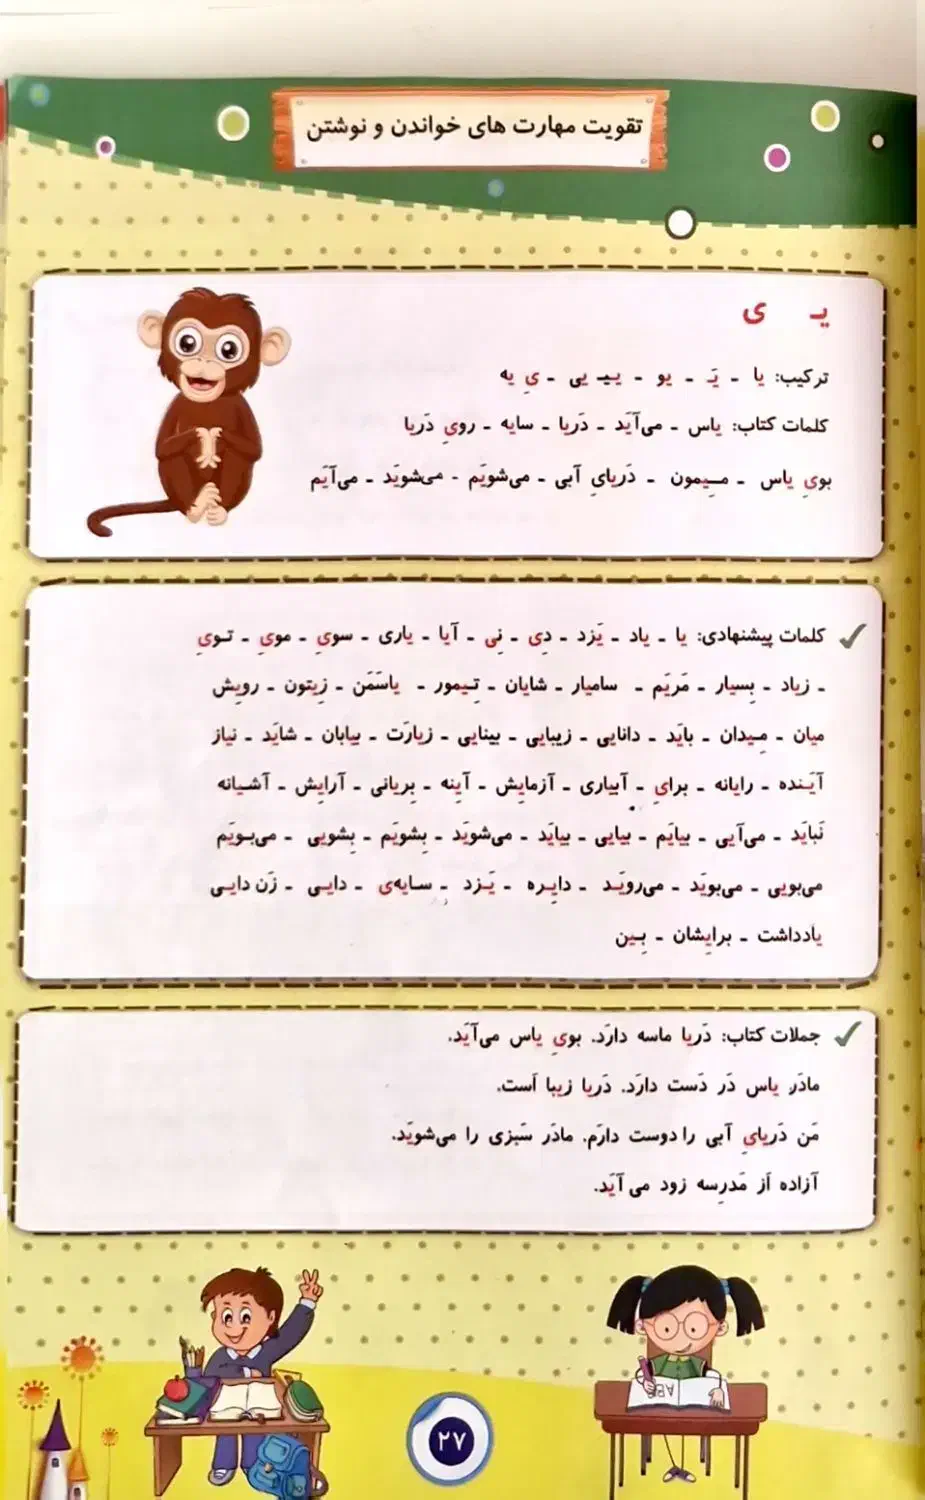 تقویت مهارت های خواندن و نوشتن
یـ ی
ترکیب: یا ـ یَـ ـ یو ـ یـیـ یی ـ یِ یه
کلمات کتاب: یاس ـ می‌آیَد ـ دَریا ـ سایه ـ رویِ دَریا
بویِ یاس ـ مـِیمون ـ دَریایِ آبی ـ می‌شویَم ـ می‌شویَد ـ می‌آیَم
کلمات پیشنهادی: یا ـ یاد ـ یَزد ـ دِی ـ نِی ـ آیا ـ یاری ـ سویِ ـ مویِ ـ تـویِ
ـ زیاد ـ بِسیار ـ مَریَم ـ سامیار ـ شایان ـ تِـیمور ـ یاسَمَن ـ زِیتون ـ رویِش
میان ـ مِـیدان ـ بایَد ـ دانایی ـ زیبایی ـ بینایی ـ زیارَت ـ بیابان ـ شایَد ـ نیاز
آیَـنده ـ رایانه ـ برایِ ـ آبیاری ـ آزمایِش ـ آیِنه ـ بِریانی ـ آرایِش ـ آشـیانه
نَبایَد ـ می‌آیی ـ بیایَم ـ بیایی ـ بیایَد ـ می‌شویَد ـ بِشویَم ـ بِشویی ـ می‌بـویَم
می‌بویی ـ می‌بویَد ـ می‌رویَـد ـ دایِـره ـ یَـزد ـ سـایه‌ی ـ دایـی ـ زَن دایـی
یادداشت ـ برایِشان ـ بِـین
جملات کتاب: دَریا ماسه دارَد. بویِ یاس می‌آیَد.
مادَر یاس دَر دَست دارَد. دَریا زیبا اَست.
مَن دَریایِ آبی را دوست دارَم. مادَر سَبزی را می‌شویَد.
آزاده اَز مَدرِسه زود می آیَد.
ABC
۲۷